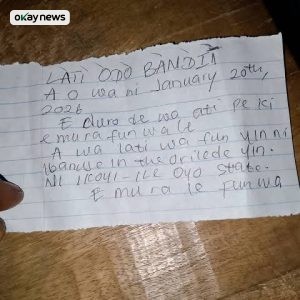 okaynews
LATI ODO BANDIT
A O wa ni January 20th,
2026
E duro de wa ati pe ki
e mura fun wa le
A wa lati wa fun yin ni
ibandle in the orilede yin.
NI IKOYI-ILE Oyo State.
E mura le fun wa